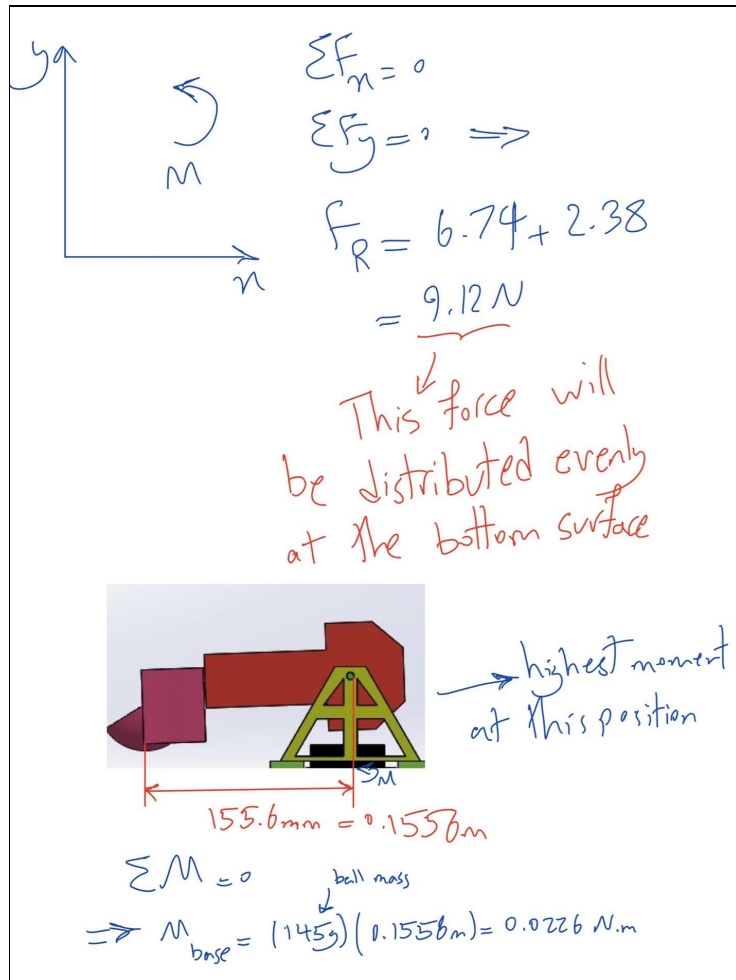 y
M
x
ΣFx = 0
ΣFy = 0 ⇒
FR = 6.74 + 2.38
= 9.12 N
This force will
be distributed evenly
at the bottom surface
→ highest moment
at this position
M
155.6mm = 0.1556m
ΣM = 0
ball mass
⇒ Mbase = (145g)(0.1556m) = 0.0226 N.m